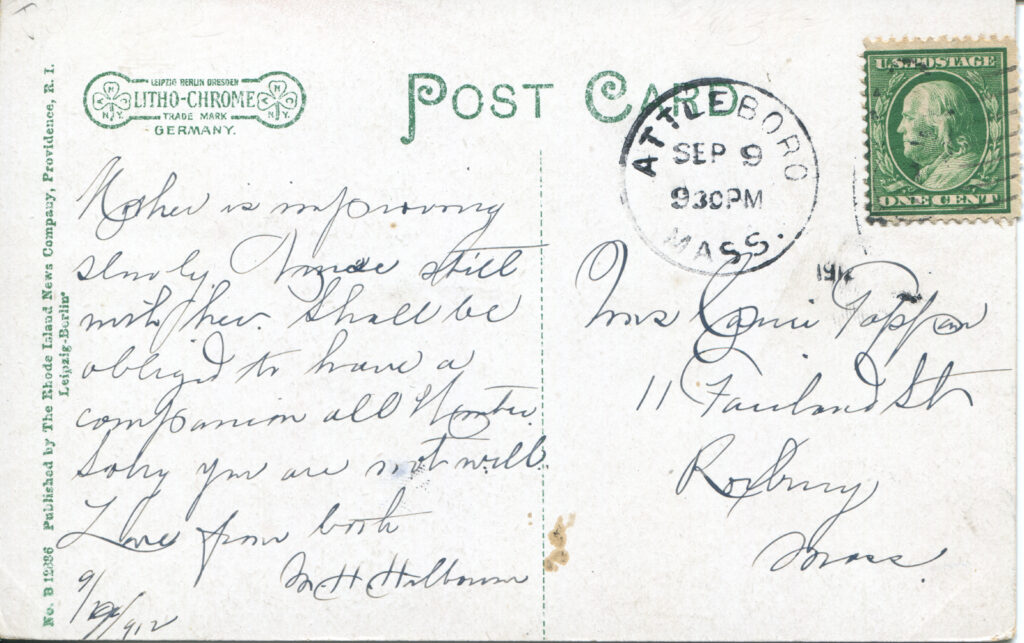 LEIPZIG BERLIN DRESDEN
LITHO-CHROME
TRADE MARK
GERMANY.
POST CARD
ATTLEBORO
SEP 9
930PM
MASS.
U.S. POSTAGE
ONE CENT
No. B 12886 Published by The Rhode Island News Company, Providence, R. I.
Leipzig-Berlin
Mother is improving
slowly. Nurse still
with her. Shall be
obliged to have a
companion all Winter.
Sorry you are not well.
Love from both
M H
9/ /912
Mrs Tappan
11 St
Roxbury
Mass.